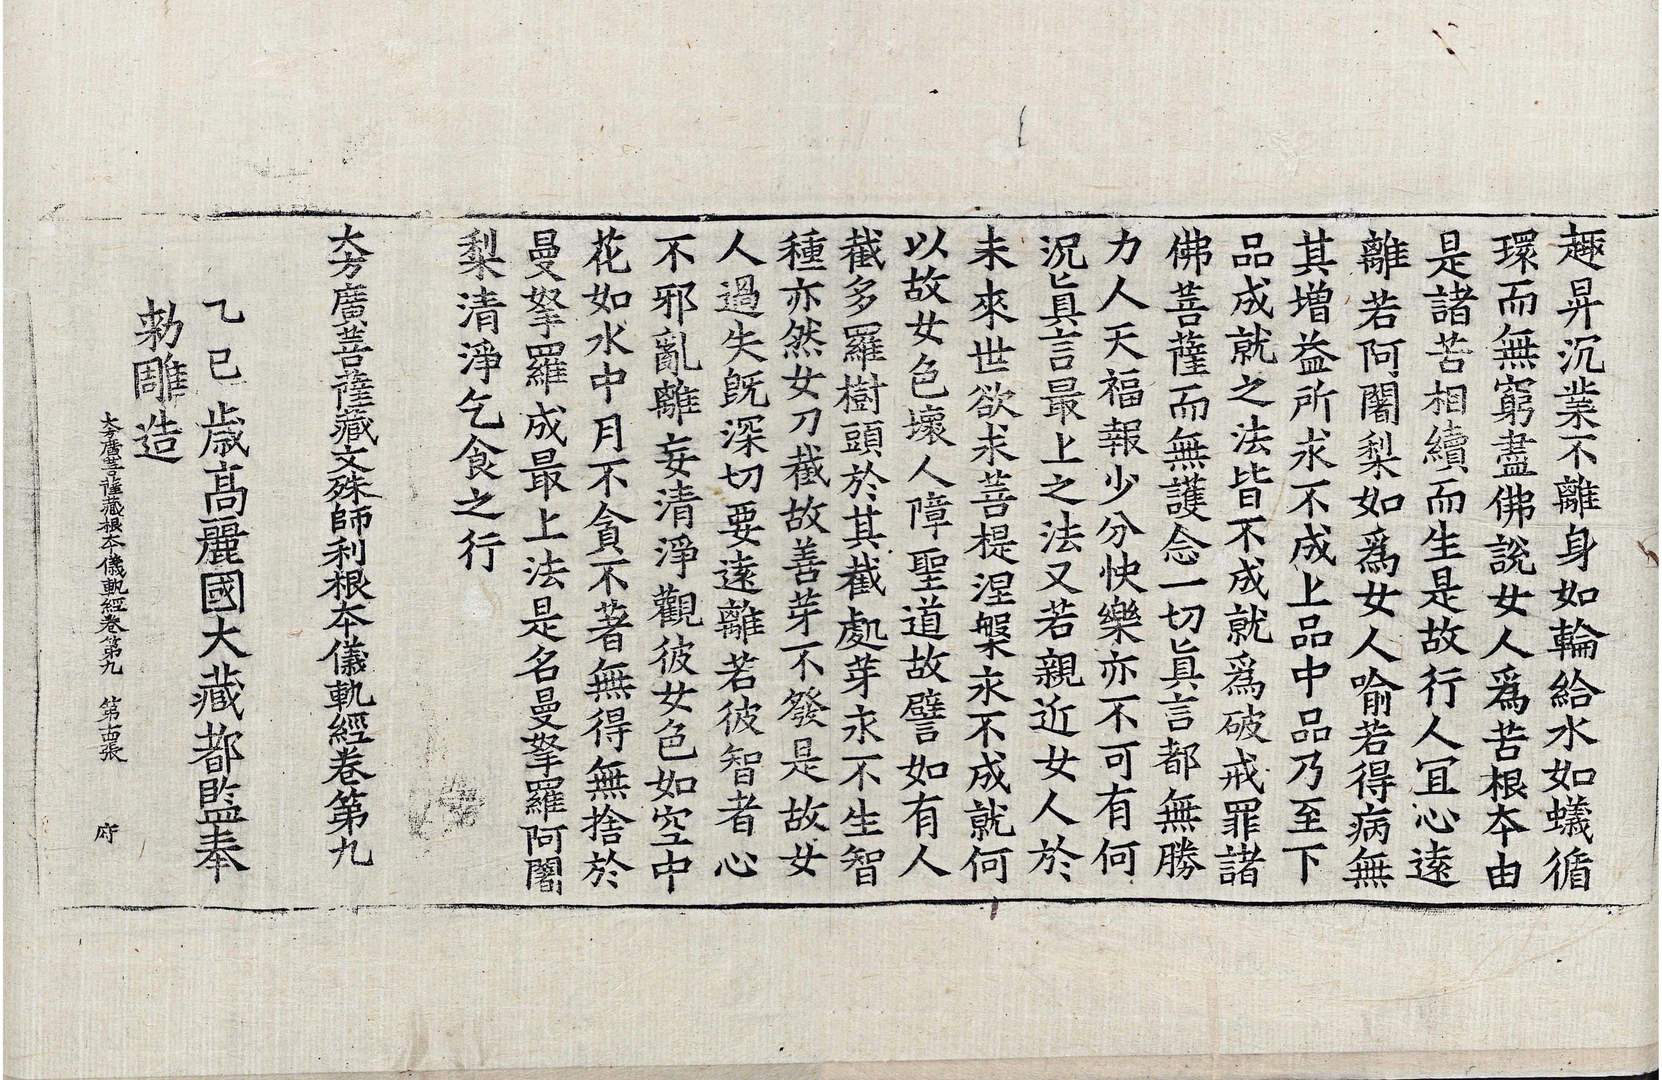 趣昇沉業不離身如輪給水如蟻循
環而無窮盡佛說女人爲苦根本由
是諸苦相續而生是故行人冝心遠
離若阿闍梨如爲女人喻若得病無
其增益所求不成上品中品乃至下
品成就之法皆不成就爲破戒罪諸
佛菩薩而無護念一切眞言都無勝
力人天福報少分快樂亦不可有何
況眞言最上之法又若親近女人於
未來世欲求菩提涅槃永不成就何
以故女色壞人障聖道故譬如有人
截多羅樹頭於其截處芽永不生智
種亦然女刀截故善芽不發是故女
人過失旣深切要遠離若彼智者心
不邪亂離妄清淨觀彼女色如空中
花如水中月不貪不著無得無捨於
曼拏羅成最上法是名曼拏羅阿闍
梨清淨乞食之行
大方廣菩薩藏文殊師利根本儀軌經卷第九
乙巳歳高麗國大藏都監奉
勅雕造
大方廣菩薩藏根本儀軌經卷第九 第十四張 府